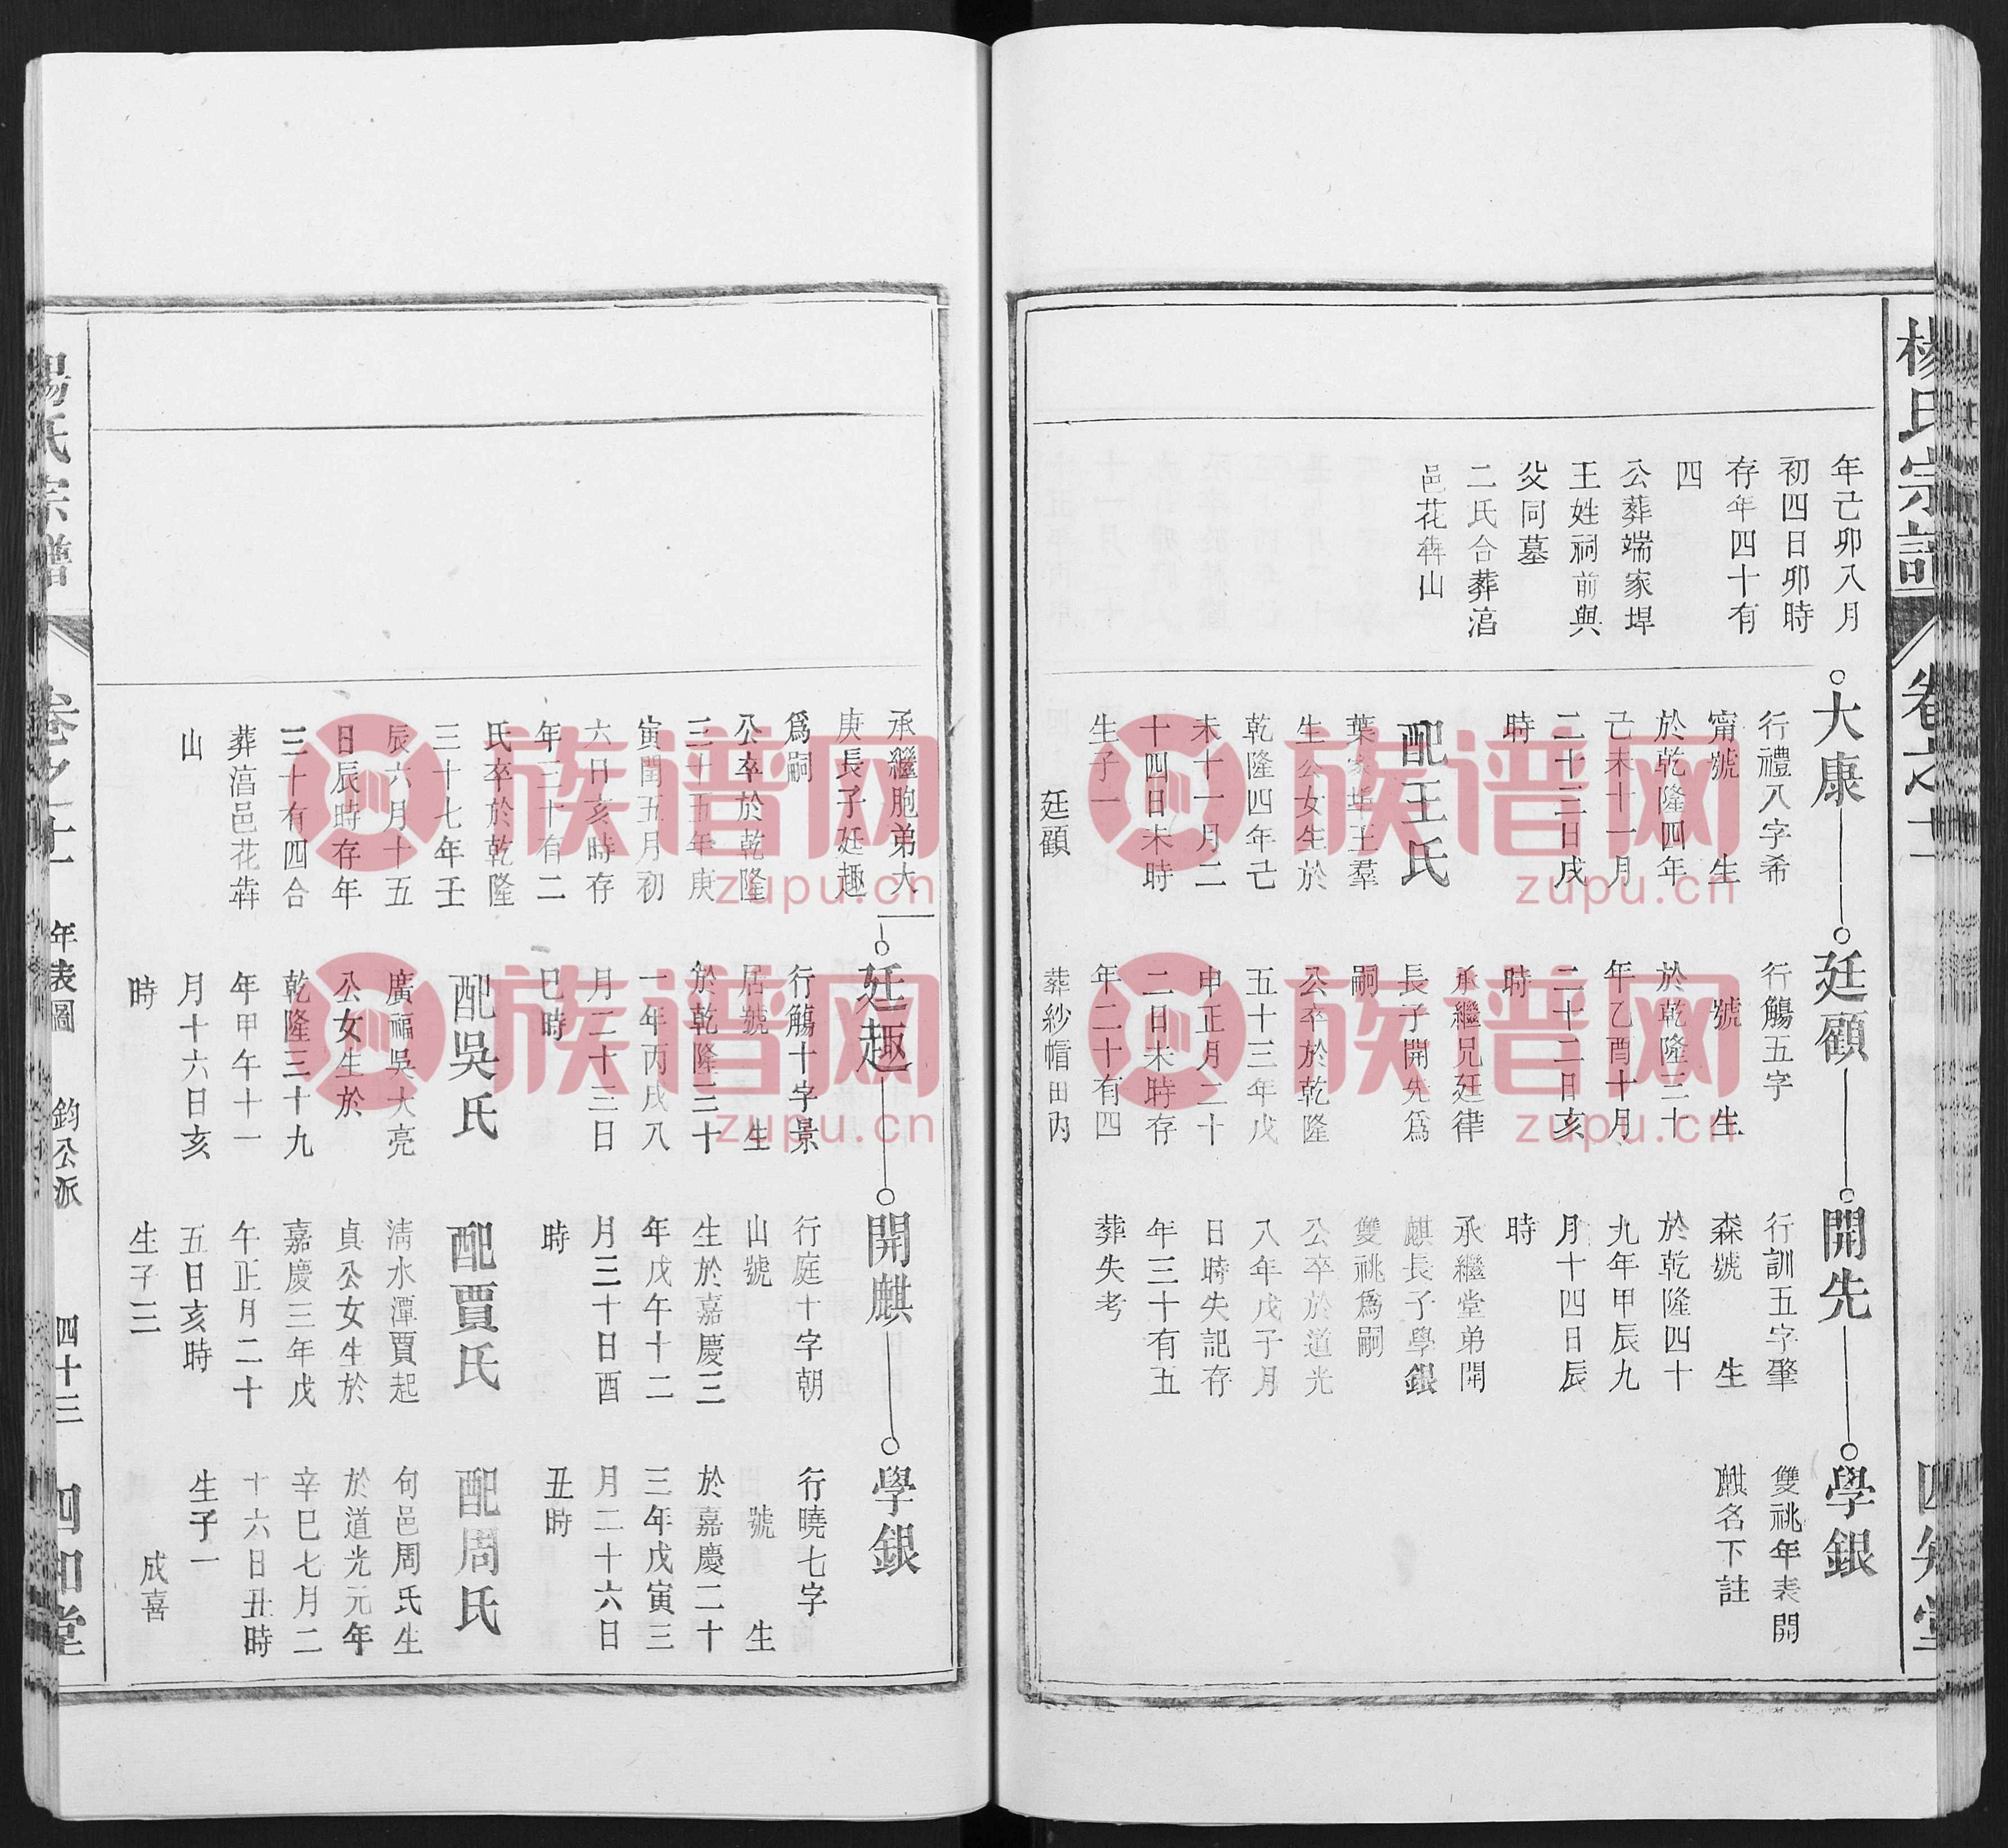 楊氏宗譜
卷之十一
四知堂
年己卯八月
初四日卯時
存年四十有
四
公葬端家垾
王姓祠前與
父同墓
二氏合葬涾
邑花犇山
大康
行禮八字希
甯號 生
於乾隆四年
己未十一月
二十三日戌
時
配王氏
葉家垾王羣
生公女生於
乾隆四年己
未十一月二
十四日未時
生子一
廷顧
廷顧
行觴五字
號 生
於乾隆三十
年乙酉十月
二十二日亥
時
承繼兄廷律
長子開先爲
嗣
公卒於乾隆
五十三年戊
申正月二十
二日未時存
年二十有四
葬紗帽田內
開先
行訓五字肇
森號 生
於乾隆四十
九年甲辰九
月十四日辰
時
承繼堂弟開
麒長子學銀
雙祧爲嗣
公卒於道光
八年戊子月
日時失記存
年三十有五
葬失考
學銀
雙祧年表開
麒名下註
承繼胞弟大
庚長子廷趣
爲嗣
公卒於乾隆
三十五年庚
寅閏五月初
六日亥時存
年三十有二
氏卒於乾隆
三十七年壬
辰六月十五
日辰時存年
三十有四合
葬涾邑花犇
山
廷趣
行觴十字景
居號 生
於乾隆三十
一年丙戌八
月二十三日
巳時
配吳氏
廣福吳大亮
公女生於
乾隆三十九
年甲午十一
月十六日亥
時
開麒
行庭十字朝
山號
生於嘉慶三
年戊午十二
月三十日酉
時
配賈氏
清水潭賈起
貞公女生於
嘉慶三年戊
午正月二十
五日亥時
生子三
學銀
行曉七字
號 生
於嘉慶二十
三年戊寅三
月二十六日
丑時
配周氏
句邑周氏生
於道光元年
辛巳七月二
十六日丑時
生子一
成喜
楊氏宗譜
卷之十一
年表圖
鈞公派
四十三
四知堂
族谱网
zupu.cn
族谱网
zupu.cn
族谱网
zupu.cn
族谱网
zupu.cn